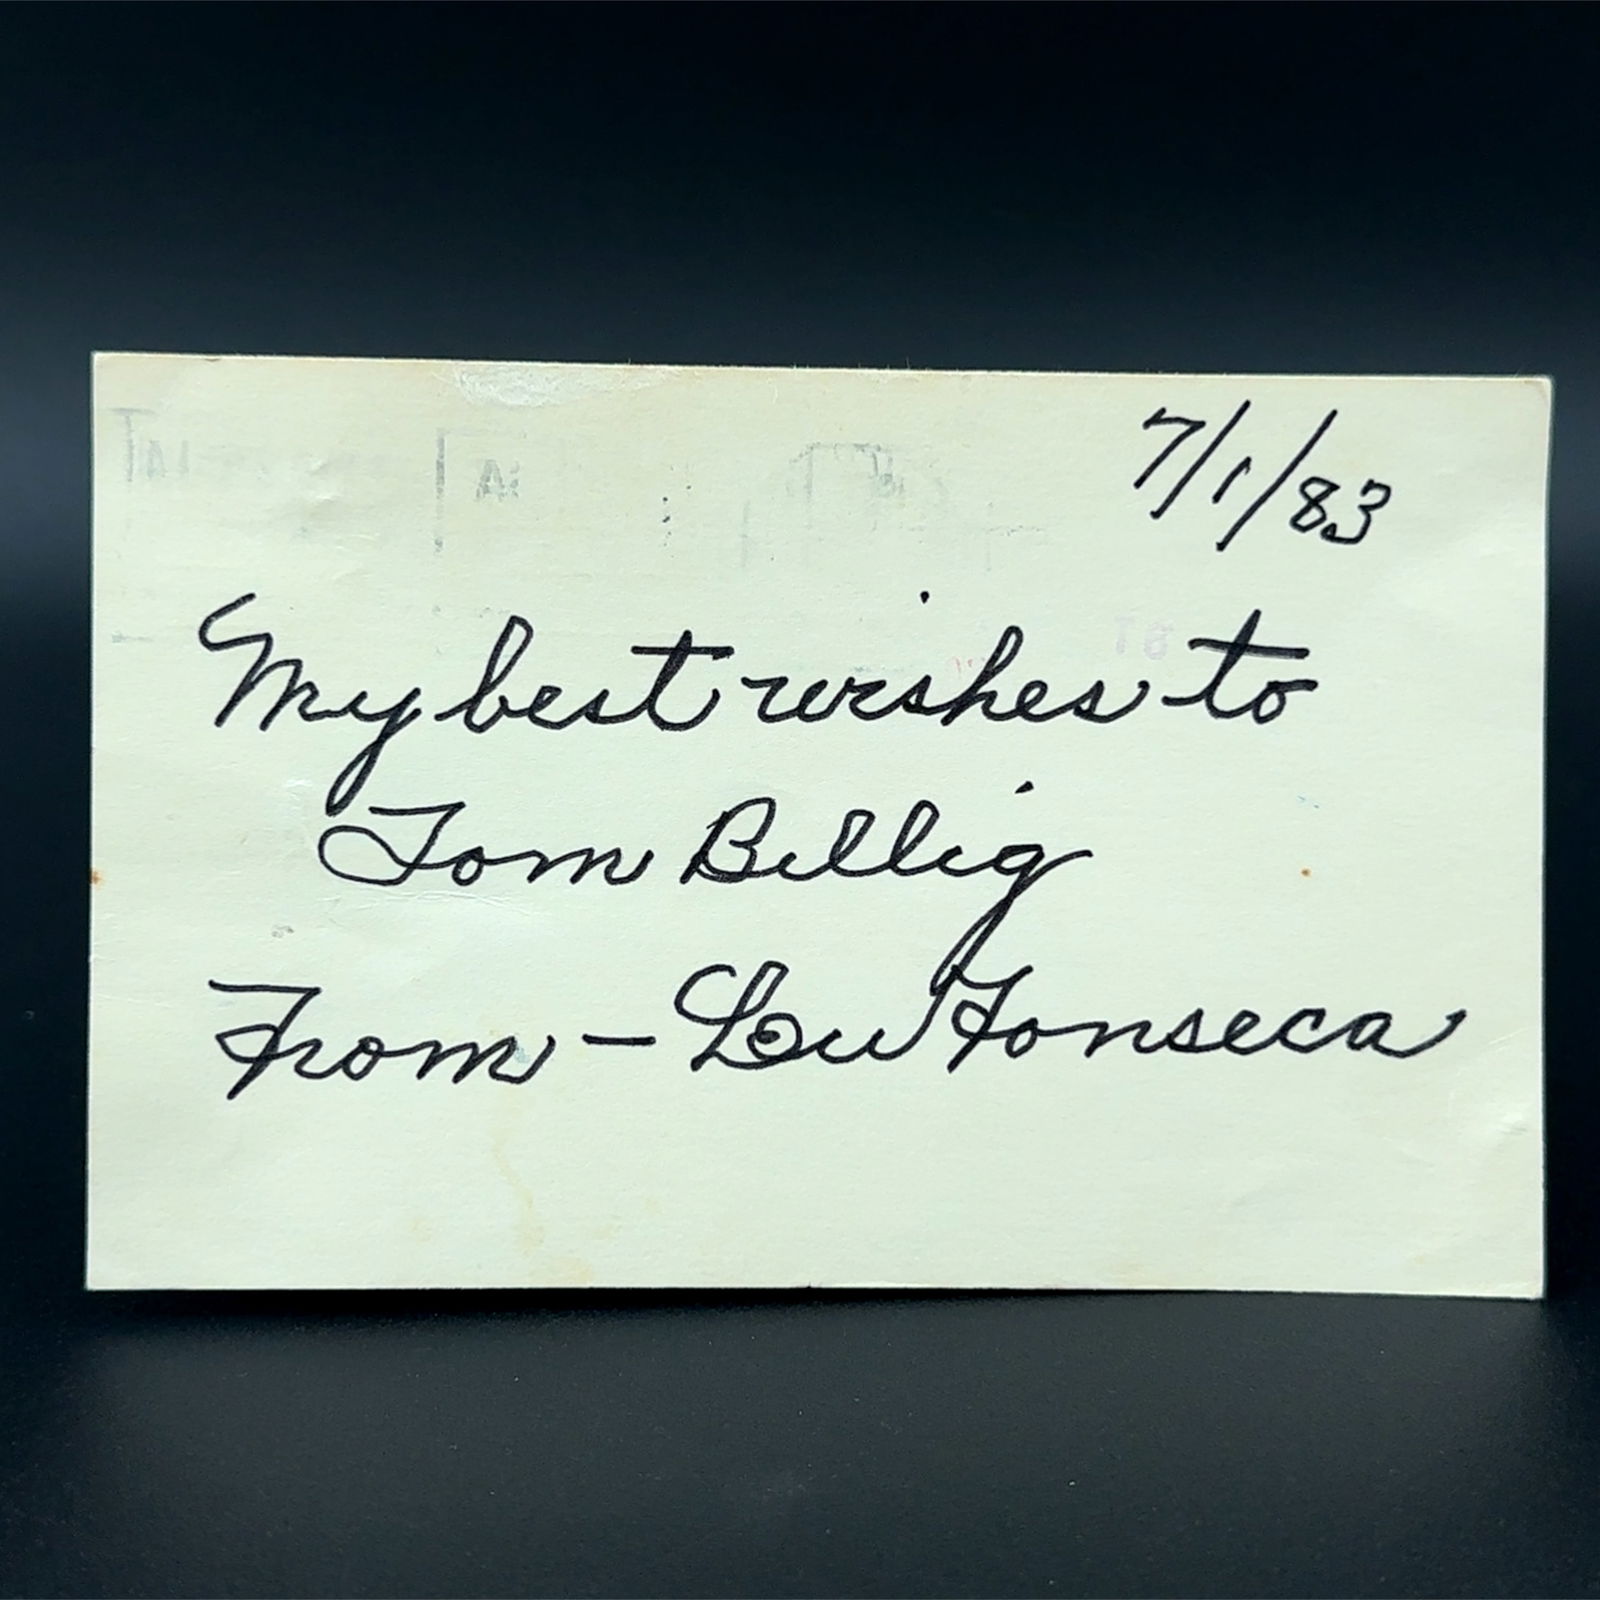 7/1/83
My best wishes to
Tom Billig
From - Lew Fonseca